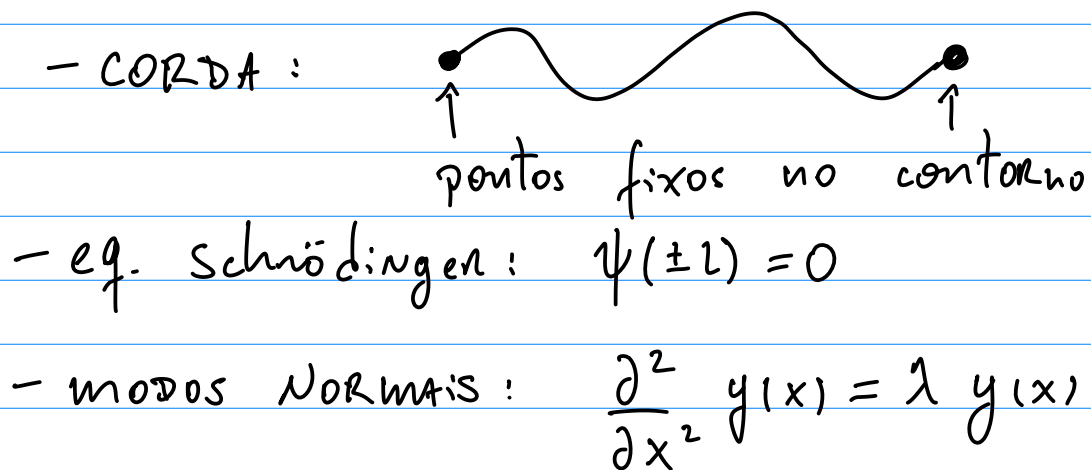 - CORDA :
↑ ↑
pontos fixos no contorno
- eq. Schrödinger: ψ(±L) = 0
- MODOS NORMAIS: ∂²/∂x² y(x) = λ y(x)